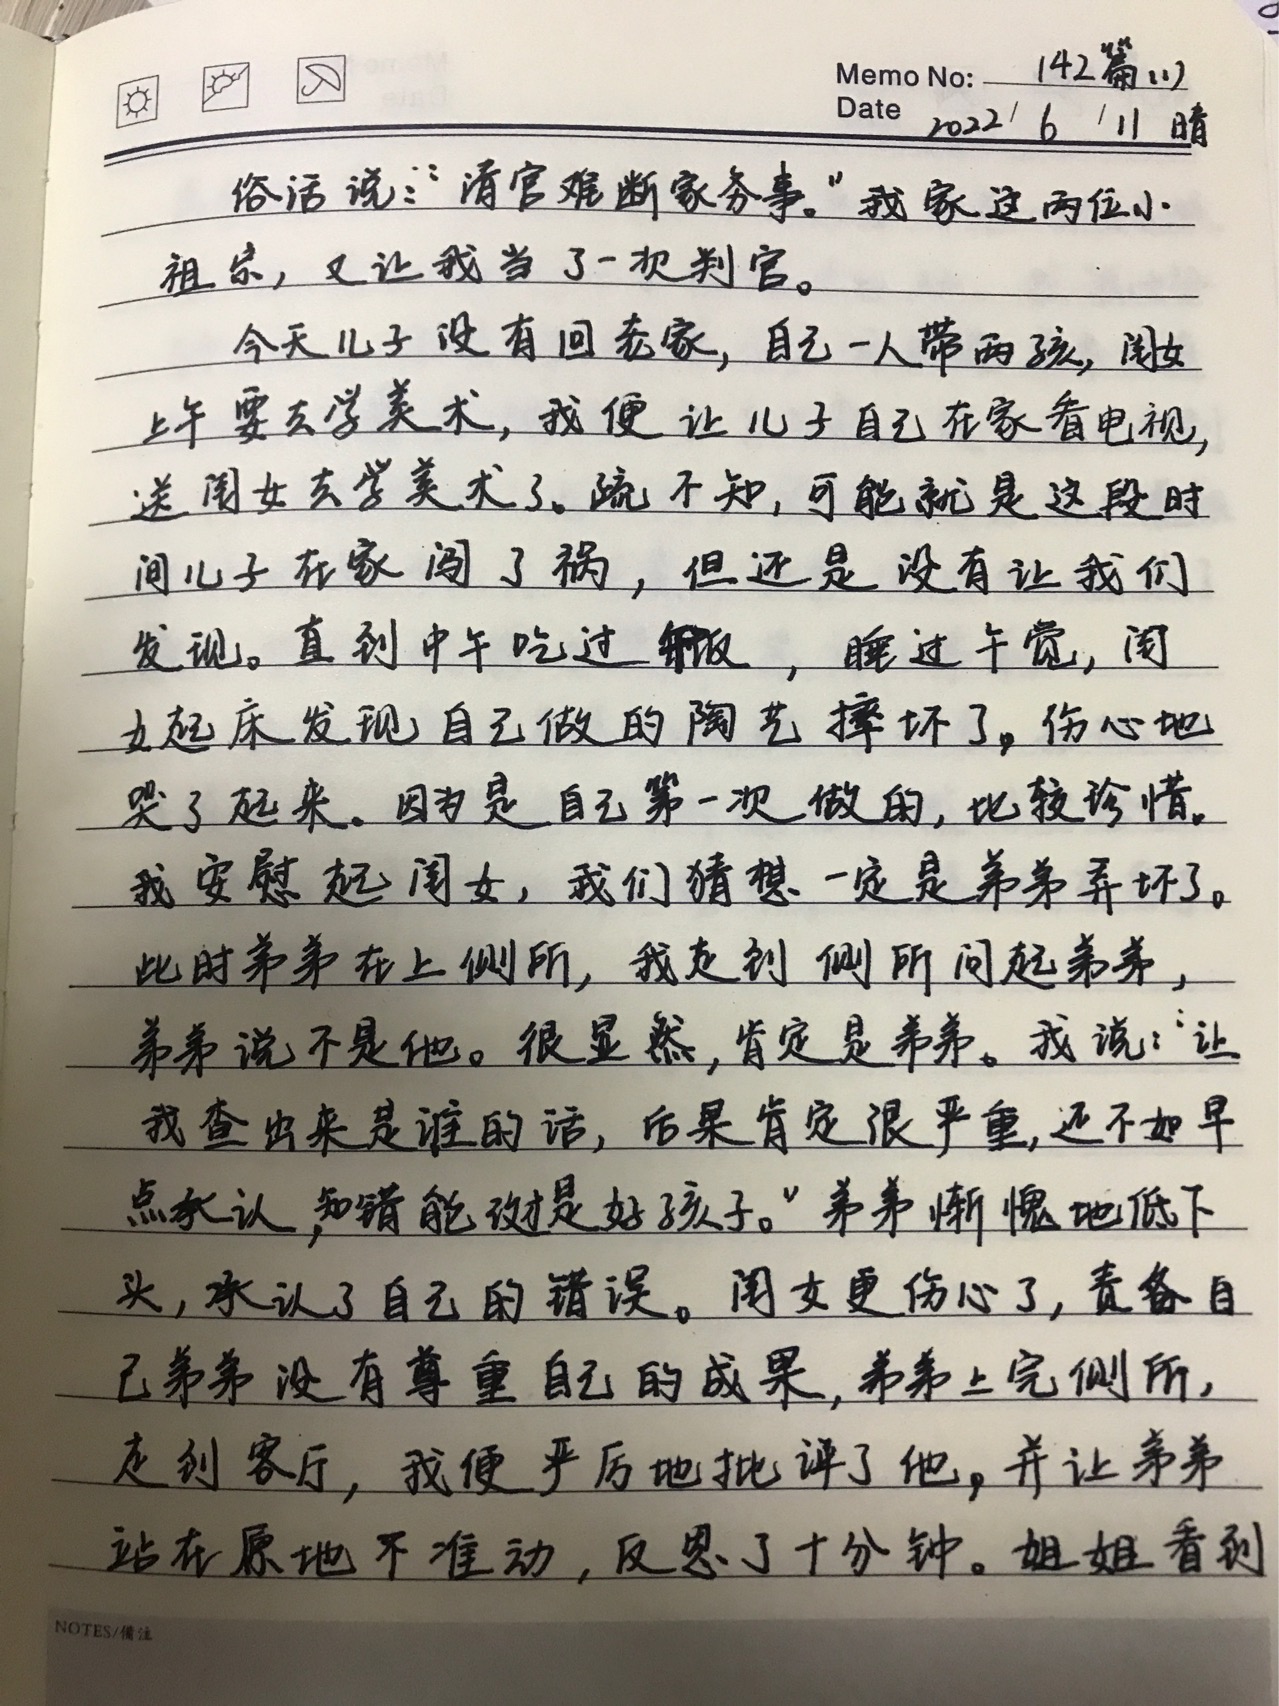 Memo No: 142篇(1)
Date 2022/6/11 晴
俗话说:“清官难断家务事。”我家这两位小
祖宗,又让我当了一次判官。
今天儿子没有回老家,自己一人带两孩,闺女
上午要去学美术,我便让儿子自己在家看电视,
送闺女去学美术了。疏不知,可能就是这段时
间儿子在家闯了祸,但还是没有让我们
发现。直到中午吃过饭,睡过午觉,闺
女起床发现自己做的陶艺摔坏了。伤心地
哭了起来。因为是自己第一次做的,比较珍惜。
我安慰起闺女,我们猜想一定是弟弟弄坏了。
此时弟弟在上侧所,我走到侧所问起弟弟,
弟弟说不是他。很显然,肯定是弟弟。我说:“让
我查出来是谁的话,后果肯定很严重,还不如早
点承认,知错能改过是好孩子。”弟弟惭愧地低下
头,承认了自己的错误。闺女更伤心了,责备自
己弟弟没有尊重自己的成果,弟弟上完侧所,
走到客厅,我便严厉地批评了他,并让弟弟
站在原地不准动,反思了十分钟。姐姐看到
NOTES/備注